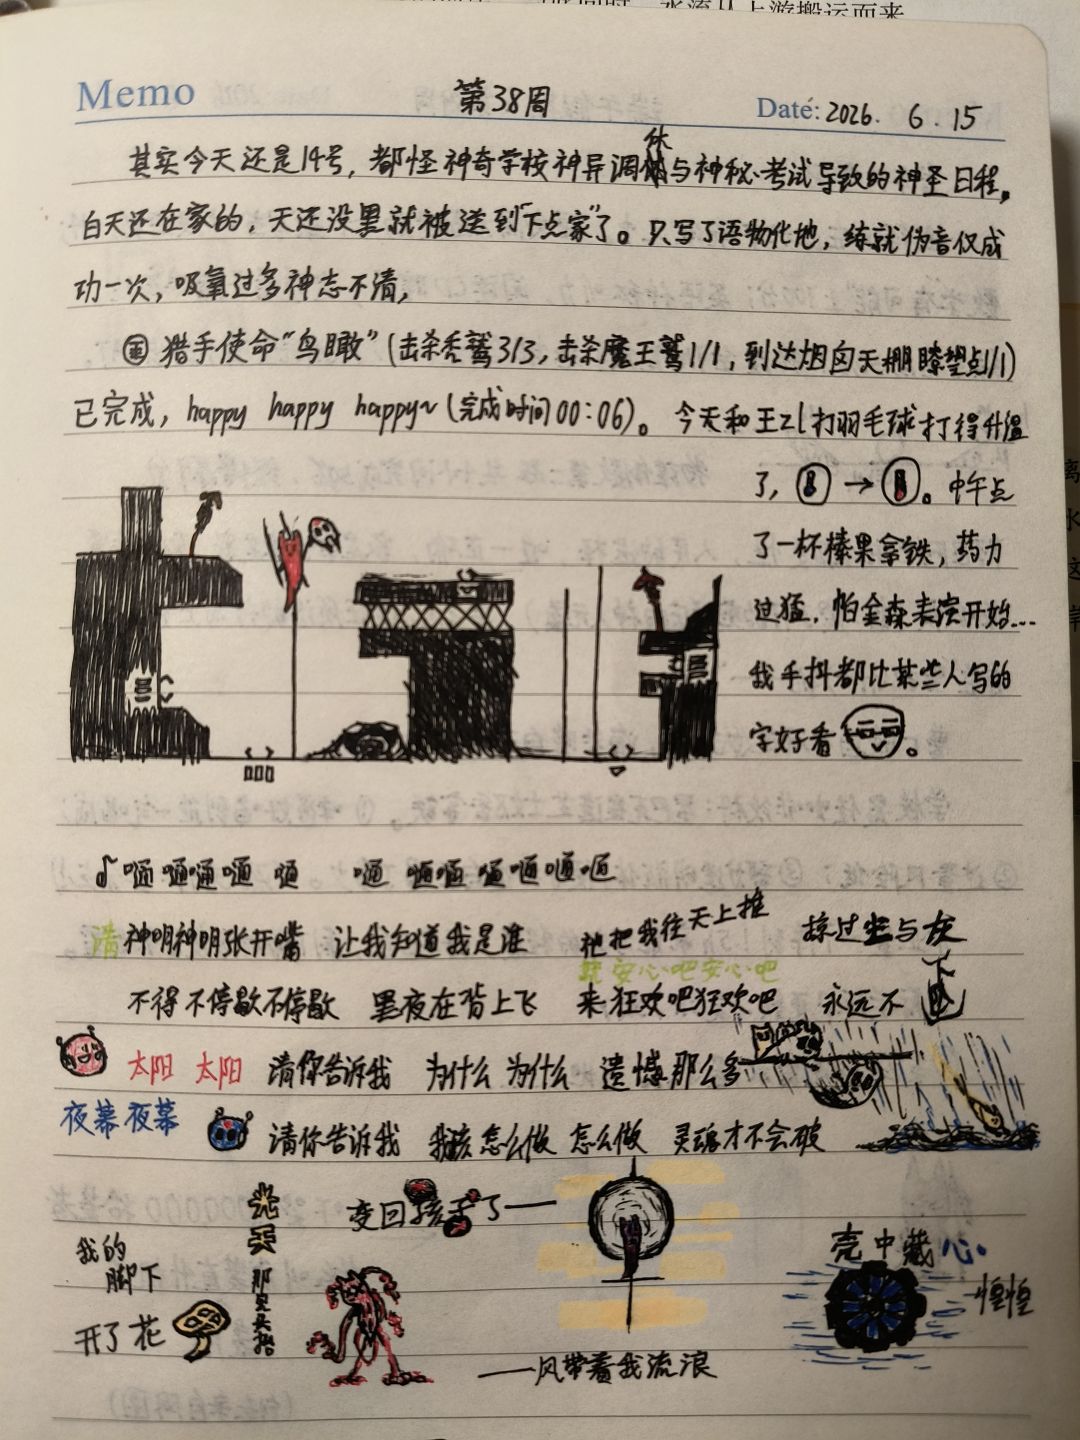 Memo 第38周 Date: 2026. 6. 15
其实今天还是14号，都怪神奇学校神异调休与神秘考试导致的神圣日程，
白天还在家的，天还没黑就被送到"下点家"了。只写了语物化地，练就伪音仅成
功一次，吸氧过多神志不清，
猎手使命"鸟瞰"（击杀秃鹫3/3，击杀魔王鹫1/1，到达烟囱天棚瞭望点1/1）
已完成，happy happy happy~（完成时间00:06）。今天和王zl打羽毛球打得升温
了，→。中午点
了一杯榛果拿铁，药力
过猛，帕金森表演开始…
我手抖都比某些人写的
字好看。
♪嗵嗵嗵嗵 嗵 嗵 嗵嗵嗵嗵嗵嗵
请神明神明张开嘴 让我知道我是谁 祂把我往天上推 掠过尘与灰
安心吧安心吧
不得不停歇不停歇 黑夜在背上飞 来狂欢吧狂欢吧 永远不下
太阳 太阳 请你告诉我 为什么 为什么 遗憾那么多
夜幕夜幕 请你告诉我 我该怎么做 怎么做 灵魂才不会破
变回孩子了——
我的
脚下
开了花
光天
那见头捂
壳中藏心
惶惶
——风带着我流浪